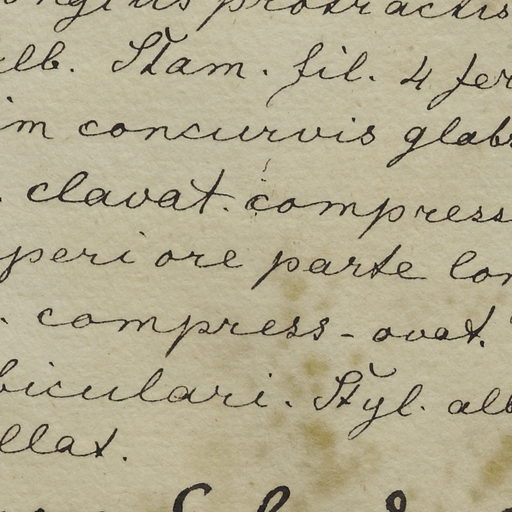 protractis
alb. Stam. fil. 4 fer
im concurvis glabr
. clavat. compress
periore parte lon
. compress-ovat.
biculari. Styl. alb
llat.